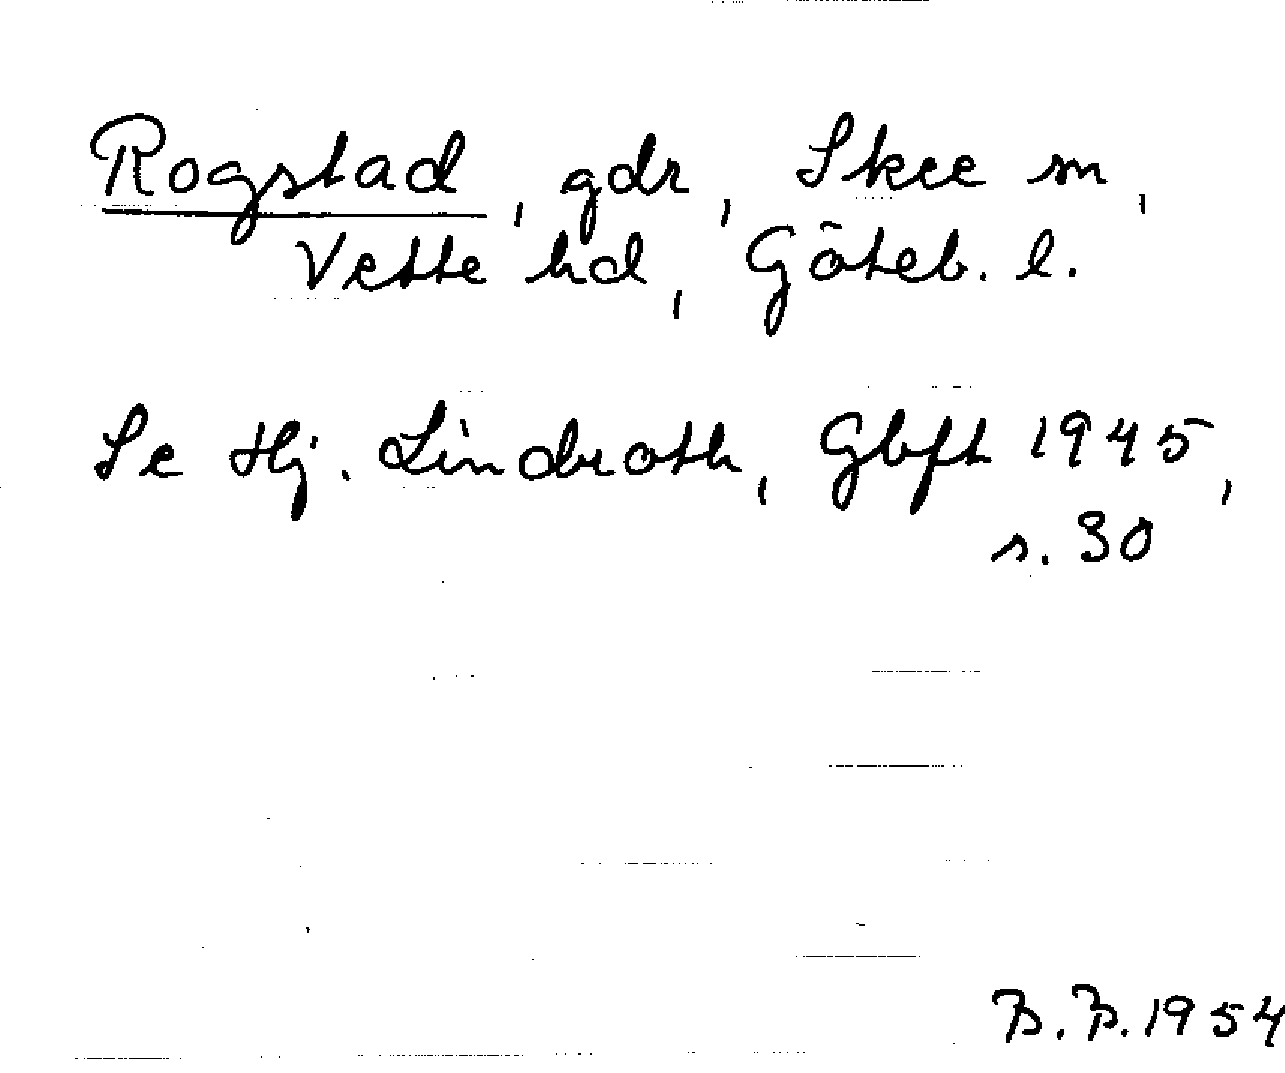 Rogstad, gdr, Skee sn,
Vette hd, Göteb. l.
Se Hj. Lindroth, Gbft 1945,
s. 30
B.B. 1954